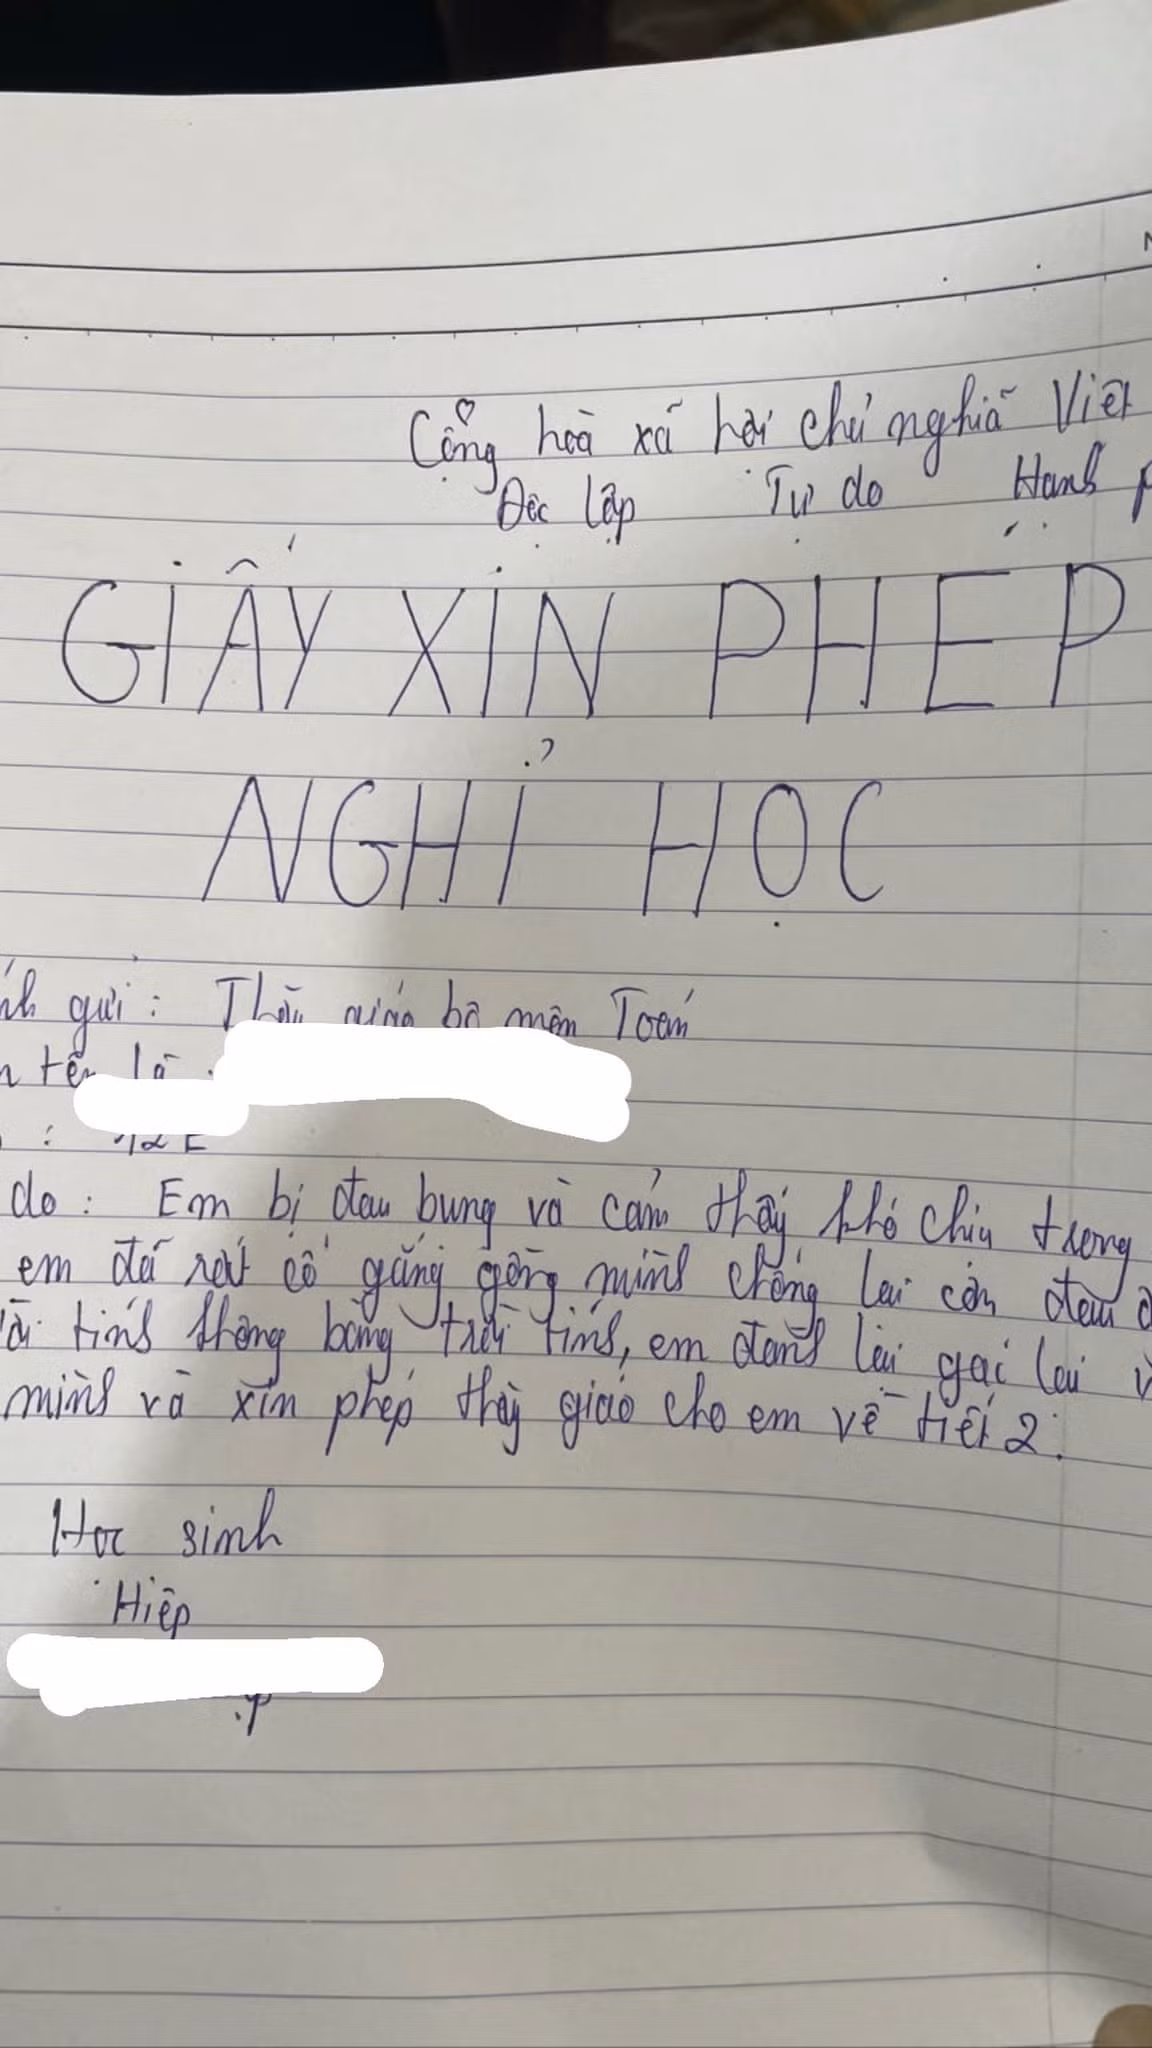 Cộng hoà xã hội chủ nghĩa Việt
Độc lập Tự do Hạnh
GIẤY XIN PHÉP
NGHỈ HỌC
gửi: Thầy giáo bộ môn Toán
tên là :
: 12E
do: Em bị đau bụng và cảm thấy khó chịu trong
em đã rất cố gắng gồng mình chống lại cơn đau
tính không bằng trời tính, em đành lại gác lại
mình và xin phép thầy giáo cho em về tiết 2.
Học sinh
Hiệp